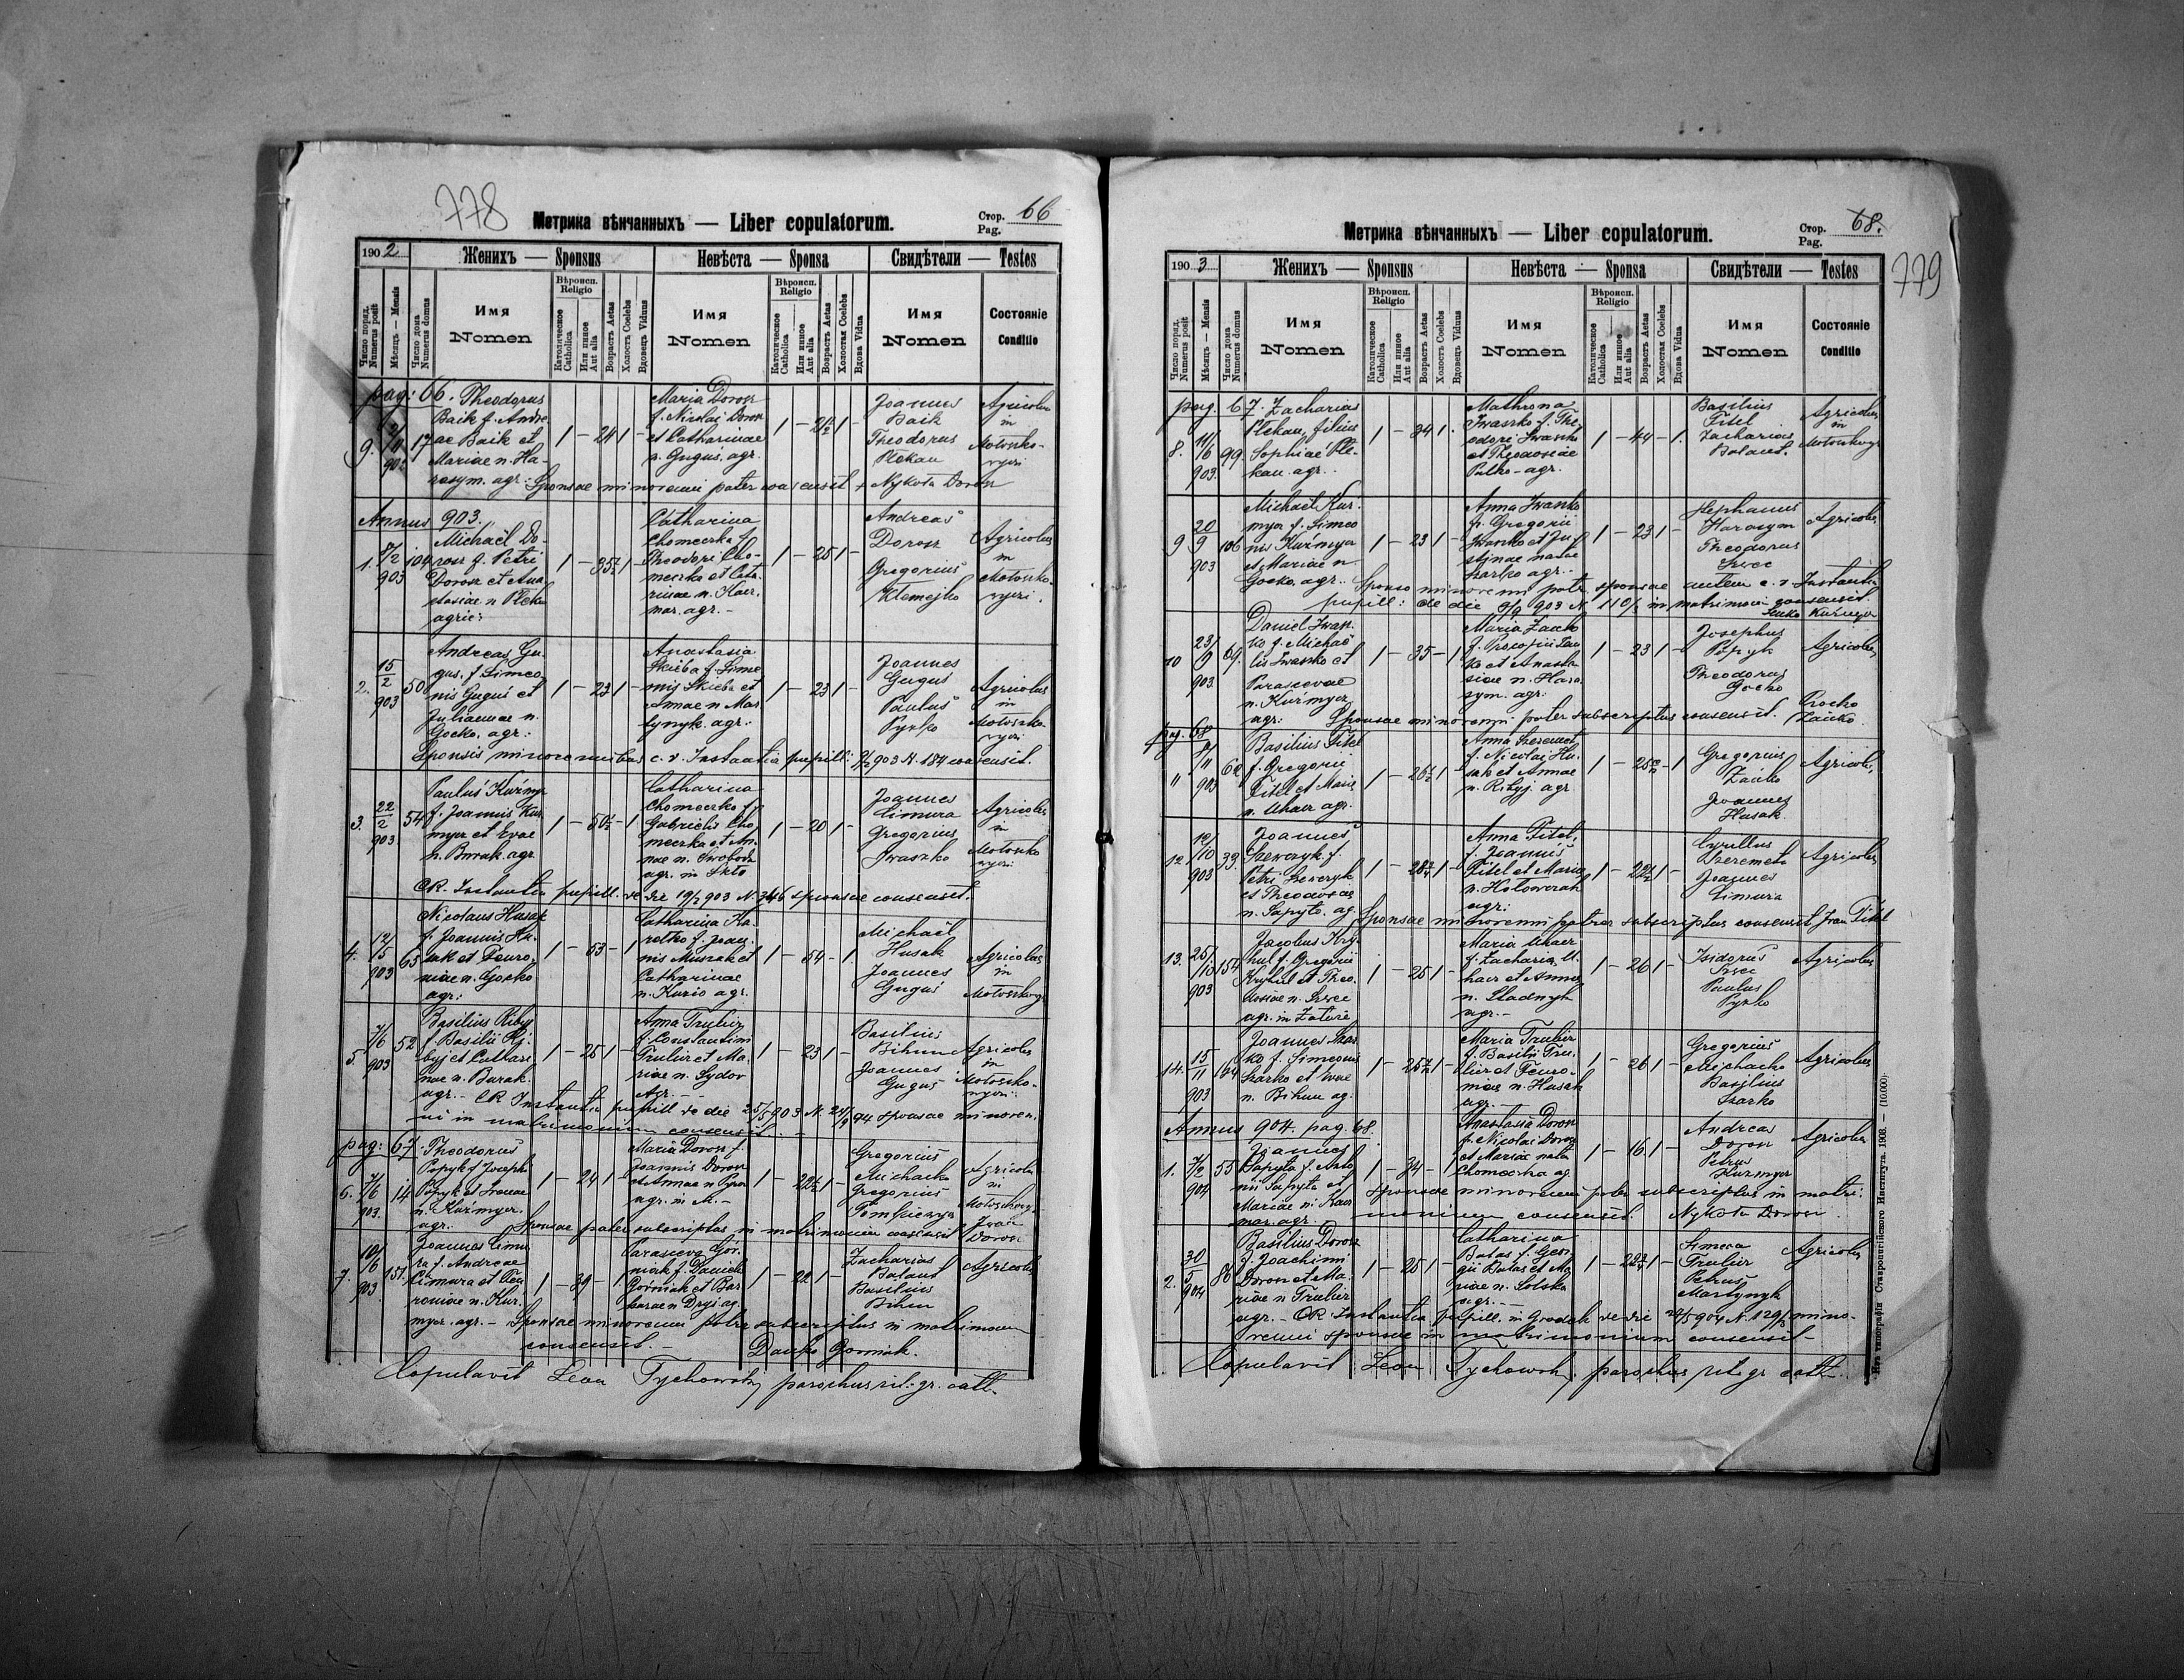 778
Метрика вѣнчанныхъ — Liber copulatorum.
Стор. Pag. 66
1902
Женихъ — Sponsus
Невѣста — Sponsa
Свидѣтели — Testes
Число поряд. Numerus posit
Мѣсяцъ — Mensis
Число дома Numerus domus
Имя Nomen
Вѣроисп. Religio
Католическое Catholica
Или инное Aut alia
Возрастъ Aetas
Холостъ Coelebs
Вдовець Viduus
Имя Nomen
Вѣроисп. Religio
Католическое Catholica
Или инное Aut alia
Возрастъ Aetas
Холостая Coelebs
Вдова Vidua
Имя Nomen
Состоянiе Conditio
pag: 66. Theodorus
Baik f. Andre
ae Baik et
Mariae n. Ha-
rasym. agr:
9. 17
1 — 24 1 -
Maria Dorosz
f. Nicolai Dorosz
et Catharinae
n. Gugus. agr.
Joannes
Baik
Theodorus
Plekan
Agricolae
in
Sponsae minorenni pater consensit + Nykola Dorosz
Annus 903.
1. 8/2 903 104
Michaël Do-
rosz f. Petri
Dorosz et Ana
stasiae n Pleka
agric:
Catharina
Chomeczka f.
Theodori Cho-
meczko et Cata-
rinae n. Kacz-
mar. agr. -
1 — 25 1 -
Andreas
Dorosz
Gregorius
Klemejko
Agricolae
in
2. 15/2 903 50
Andreas Gu
gus. f Simeo
nis Guguś et
Julianae n.
Gocko. agr:
1 — 23 1 -
Anastasia
Skiba f. Sime
nis Skiba et
Annae n Mar
tynyk. agr:
1 — 23 1 -
Joannes
Guguś
Paulus
Pyzko
Agricolae
in
Sponsis minorennibus c. r. Instantia pupill: 903 N. 184 consensit.
3. 22/2 903 54
Paulus Kuźmyr
f. Joannis Kuz
myra et Evae
n. Burak. agr
Catharina
Chomeczko f.
Gabrielis Cho
meczka et An-
nae n. Swoboda
agr. in
1 — 20 1 -
Joannes
Cimura
Gregorius
Iwaszko
Agricolae
in
CR. Instantia pupill. de die 19/2 903 N. 346 sponsae consensit.
4. 12/5 903 65
Nicolaus Husak
f. Joannis Hu-
sak et Feuro-
niae n. Gocko
agr:
1 — 53 — 1
Catharina Ka
rotko f. Joan-
nis Muszak et
Catharinae
n. Kurio agr.
1 — 54 — 1.
Michaël
Husak
Joannes
Guguś
Agricolae
in
5. 7/6 903 52
Basilius Ryby
f. Basilii Ry-
byj et Catari
nae n. Burak.
agr. -
1 — 25 1 -
Anna Trubir
f. Constantini
Trubir et Ma-
riae n. Sydor
Agr. -
1 — 23 1 -
Basilius
Bihun
Joannes
Guguś
Agricolae
in
CR Instantia pupill de die 25/5 903 sponsae minoren.
ni in matrimonium consensit. -
pag: 67. Theodorus
Popyk f Josephi
Popyk et Irenae
n. Kuźmyr.
agr.
6. 7/6 903. 14
1 — 24 1 -
Maria Dorosz f.
Joannis Dorosz
et Annae n Pyzo
agr. in
Gregorius
Michaiko
Gregorius
Agricolae
in
Sponsae pater subscriptus in matrimonium consensit
Iwan
Dorosz
7. 10/6 903 151
Joannes Cimu
ra f. Andreae
Cimura et Feu
roniae n. Kuź.
myr. agr. -
1 — 39 — 1
Parasceva Gor-
niak f. Danieli
Górniak et Bar
barae n Drys ag.
1 — 22 1 -
Zacharias
Balaut
Basilius
Bihun
Agricolae
Sponsae minorenni pater subscriptus in matrimonium
consensit. - Danko Gorniak.
Copulavit Leon Tychowski, parochus rit. gr. cath.
779
Метрика вѣнчанныхъ — Liber copulatorum.
Стор. Pag. 68.
1903
Женихъ — Sponsus
Невѣста — Sponsa
Свидѣтели — Testes
Число поряд. Numerus posit
Мѣсяцъ — Mensis
Число дома Numerus domus
Имя Nomen
Вѣроисп. Religio
Католическое Catholica
Или инное Aut alia
Возрастъ Aetas
Холостъ Coelebs
Вдовець Viduus
Имя Nomen
Вѣроисп. Religio
Католическое Catholica
Или инное Aut alia
Возрастъ Aetas
Холостая Coelebs
Вдова Vidua
Имя Nomen
Состоянiе Conditio
pag. 67. Zacharias
Plekan, filius
Sophiae Ple-
kan. agr.
8. 11/6 903. 99
Mathrona
Iwaszko f. The
odori Iwaszko
et Theodosiae
Putko - agr.
1 — 44 — 1.
Basilius
Fitel
Zacharias
Balaut.
Agricolae
in
9 20/9 903 106
Michaël Kuź-
myr f. Simeo
nis Kuźmyr
et Mariae n
Gocko. agr.
1 — 23 1 -
Anna Iwasko
f. Gregorii
Iwasko et Ju-
stinae natae
Szarko agr.
1 — 23 1 -
Stephanus
Harasym
Theodorus
Szwec
Agricolae
Sponso minorenni pater, sponsae autem c. r. Instantia
pupill: de die 9/9 903 N 110/2 in matrimon. consensit.
10 23/9 903. 69.
Daniel Iwasz-
ko f. Michaë
lis Iwaszko et
Parascevae
n. Kuźmyr
agr:
1 — 35 — 1.
Maria Zaiko
f. Procopii Zai
ko et Anasta
siae n. Hara
sym. agr:
1 — 23 1 -
Josephus
Popyk
Theodorus
Gocko
Agricolae
Sponsae minorenni pater subscriptus consensit. Procko
Zaiko.
pag. 68
11 62
Basilius Fitel
f. Gregorii
Fitel et Mariae
n. Uhacz agr.
Anna Szeremet
f. Nicolai Hu-
sak et Annae
n. Rybyj. agr
Gregorius
Zaiko
Joannes
Husak
Agricolae
12. 12/10 903 39.
Joannes
Szewczyk f.
Petri Szewczyk
et Theodosiae
n. Sapyta. ag.
Anna Fitel,
f. Joannis
Fitel et Mariae
n. Holowczak
agr:
Cyrillus
Szeremeta
Joannes
Cimura
Agricolae
Sponsae minorenni patre subscriptus consensit Iwan Fitel
13. 25/10 903 154
Jacobus Kry-
hul f. Gregorii
Kryhul et Theo-
dosiae n. Szwec
agr. in
1 — 25 1 -
Maria Uhacz
f. Zachariae U-
hacz et Annae
n. Stadnyk
agr. -
1 — 26 1 -
Isidorus
Szwec
Paulus
Pyzko
Agricolae
14. 15/11 903 104
Joannes Szar
ko f. Simeonis
Szarko et Evae
n. Bihun ag.
Maria Trubir
f. Basilii Tru-
bir et Feuro-
niae n. Husak
agr. -
1 — 26 1 -
Gregorius
Michaiko
Basilius
Szarko
Agricolae
Annus 904. pag. 68.
1. 904 55
Joannes
Sapyta f. Anto
nii Sapyta et
Mariae n. Kacz
mar. agr. -
1 — 34 — 1
Anastasia Dorosz
f. Nicolai Dorosz
et Mariae nata
Chomeczka ag.
1 — 16 1 -
Andreas
Dorosz
Petrus
Kuzmyr
Agricolae
sponsae minorenni pater subscriptus in matri-
monium consensit. Nykola Dorosz.
2. 30/5 904 86
Basilius Dorosz
f. Joachimi
Dorosz et Ma-
riae n Trubir
agr. -
1 — 25 1 -
Catharina
Balas f. Geor-
gii Balas et Ma
riae n. Solska
agr. -
Simeon
Trubir
Petrus
Martynyk
Agricolae
CR. Instantia pupill. in Grodek de die 904 N. 129/ mino-
renni sponsae in matrimonium consensit -
Copulavit Leon Tychowski, parochus rit. gr. cath.
Изъ типографiи Ставропигiйского Института. 1908. — (10.000).